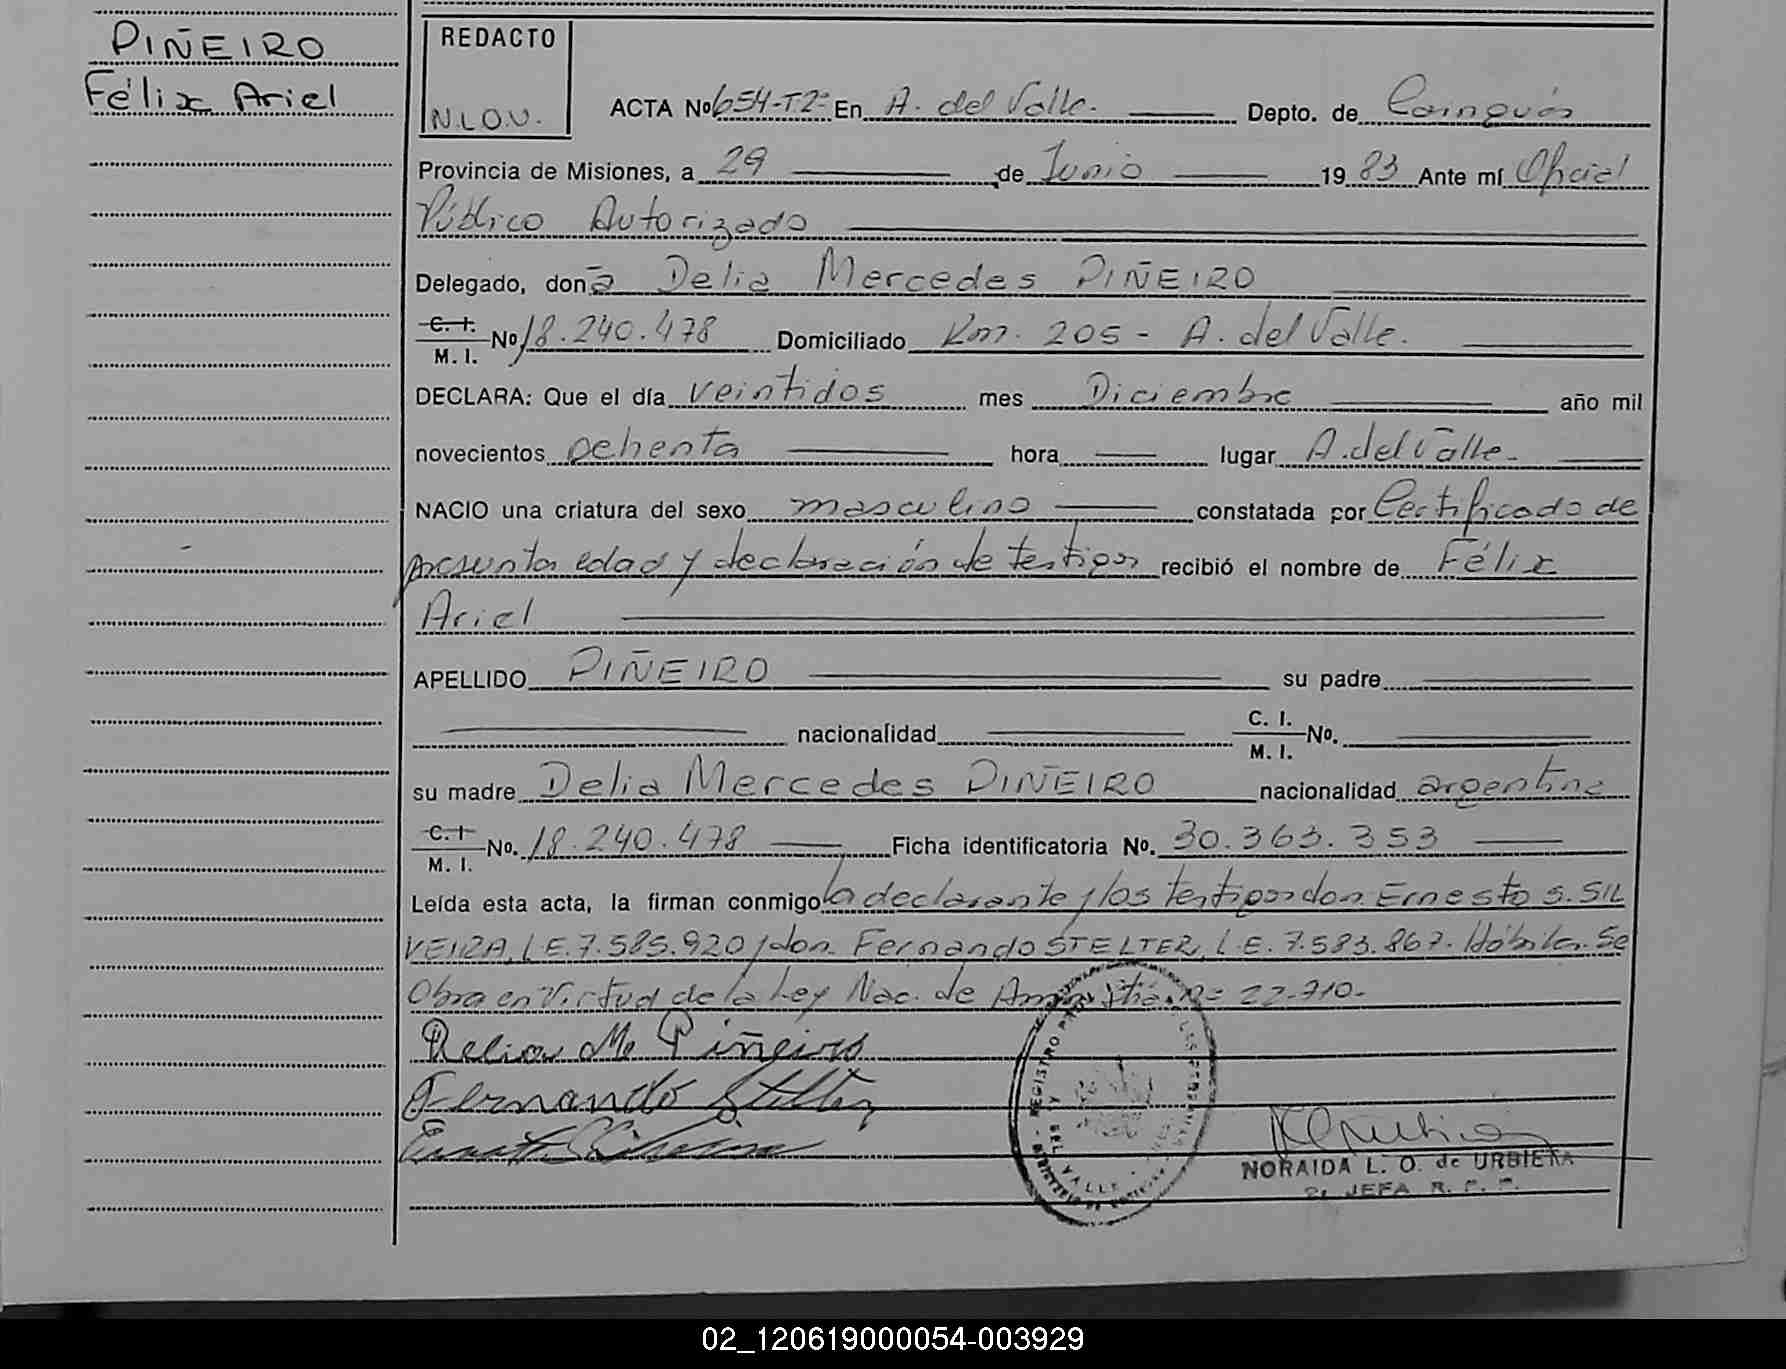 PIÑEIRO
Félix Ariel
REDACTO
N.L.O.U.
ACTA Nº 654-T.2º En A. del Valle. Depto. de Cainguás
Provincia de Misiones, a 29 de Junio 1983 Ante mí Oficial
Público Autorizado
Delegado, donã Delia Mercedes PIÑEIRO
C. I. M. I. Nº 18.240.478 Domiciliado Km. 205 - A. del Valle.
DECLARA: Que el día veintidos mes Diciembre año mil
novecientos ochenta hora lugar A. del Valle.
NACIO una criatura del sexo masculino constatada por Certificado de
presunta edad y declaración de testigos recibió el nombre de Félix
Ariel
APELLIDO PIÑEIRO su padre
nacionalidad C. I. M. I. No.
su madre Delia Mercedes PIÑEIRO nacionalidad argentina
C. I. M. I. No. 18.240.478 Ficha identificatoria No. 30.363.353
Leída esta acta, la firman conmigo la declarante y los testigos don Ernesto S. SIL
VEIRA, L.E. 7.585.920 y don Fernando STELTER, L.E. 7.583.867. Hábiles. Se
Obra en Virtud de la Ley Nac. de Amnistía nº 22.710-
Delia M. Piñeiro
Fernando Stelter
REGISTRO
DEL VALLE
NORAIDA L. O. de URBIETA
JEFA R. P. P.
02_120619000054-003929